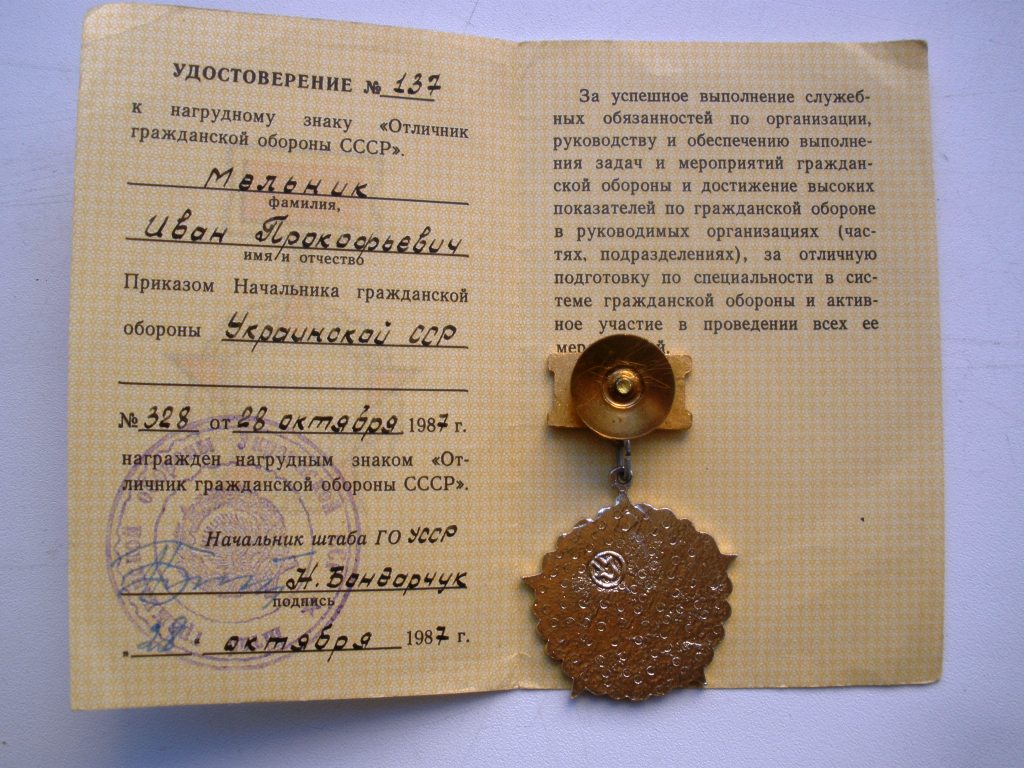 УДОСТОВЕРЕНИЕ № 137
к нагрудному знаку «Отличник
гражданской обороны СССР».
Мельник
фамилия,
Иван Прокофьевич
имя и отчество
Приказом Начальника гражданской
обороны Украинской ССР
№ 328 от 28 октября 1987 г.
награжден нагрудным знаком «От-
личник гражданской обороны СССР».
Начальник штаба ГО УССР
Н. Бондарчук
подпись
„28" октября 1987 г.
За успешное выполнение служеб-
ных обязанностей по организации,
руководству и обеспечению выполне-
ния задач и мероприятий граждан-
ской обороны и достижение высоких
показателей по гражданской обороне
в руководимых организациях (час-
тях, подразделениях), за отличную
подготовку по специальности в сис-
теме гражданской обороны и актив-
ное участие в проведении всех ее